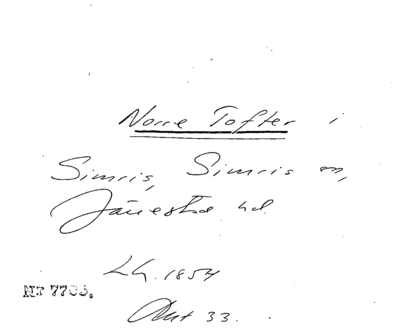 Norre Tofter i
Simris, Simris sn,
Järrestad hd.
LG. 1854
Akt 33.